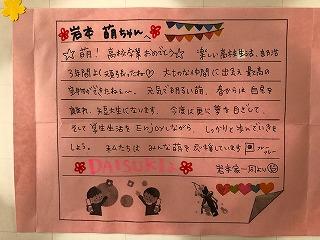 岩本 萌ちゃんへ
☆萌！ 高校卒業おめでとう☆ 楽しい高校生活、
3年間よく頑張ったね♡ 大切な仲間に出会え 最高の
宝物ができたね〜。 元気で明るい萌、春からは 自宅を
離れ、短大生になります。 今度は更に夢を目ざして、
そして学生生活を Enjoyしながら しっかりと歩んでいきま
しょう。 私たちは みんな萌を応援しています フレーフレー
DAISUKI♡
岩本家一同より